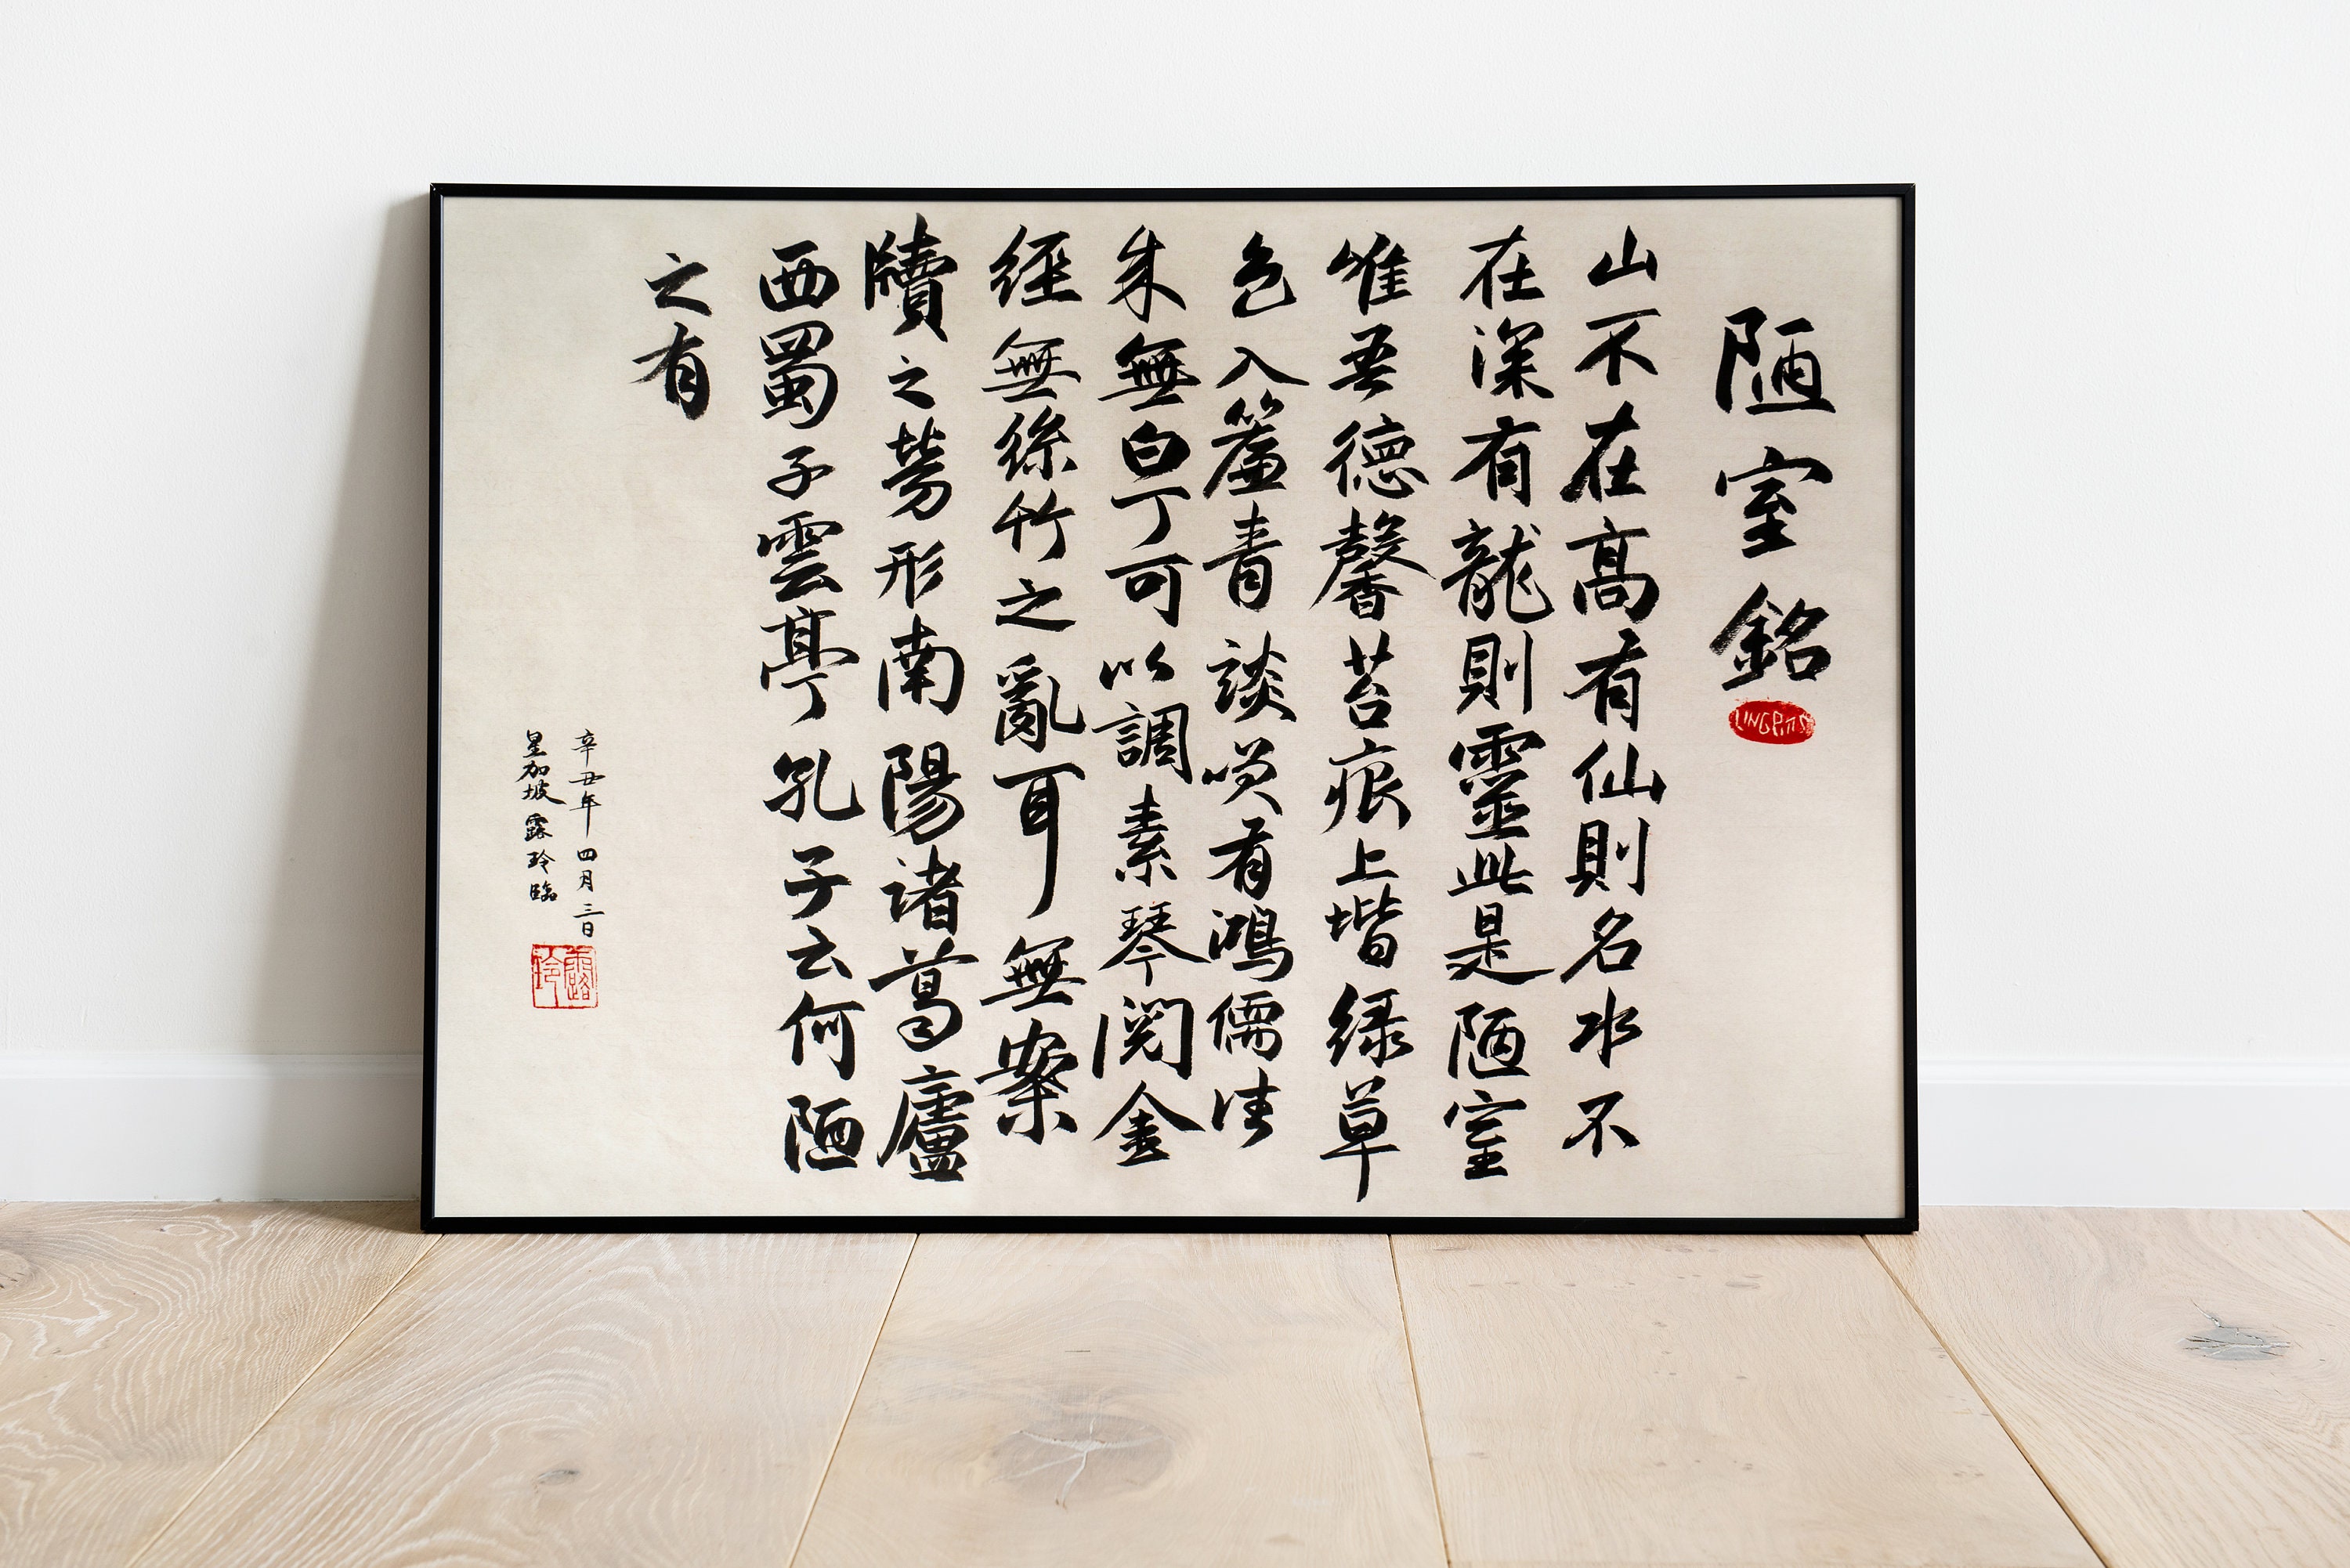 陋室銘
山不在高有仙則名水不
在深有龍則靈此是陋室
唯吾德馨苔痕上堦綠草
色入簾青談咲有鴻儒往
来無白丁可以調素琴閱金
經無絲竹之亂耳無案
牘之勞形南陽諸葛廬
西蜀子雲亭孔子云何陋
之有
辛丑年四月三日
星加坡露玲臨
露玲